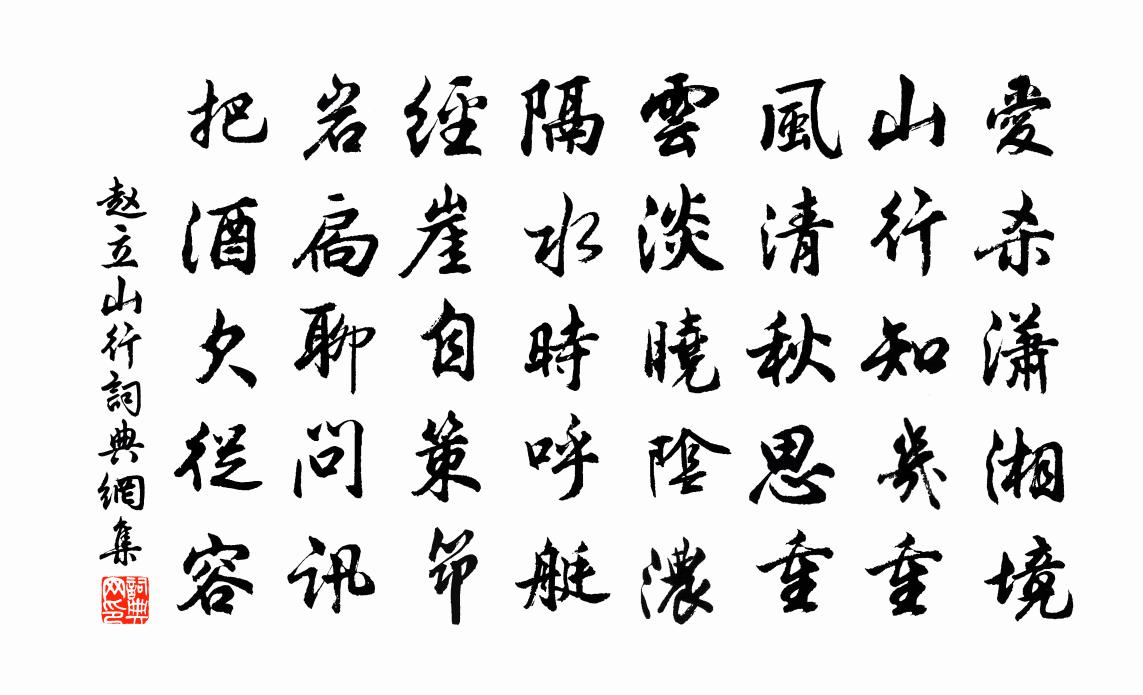 愛杀瀟湘境
山行知幾重
風清秋思重
雲淡曉陰濃
隔水時呼艇
經崖自策筇
岩扃聊問訊
把酒欠從容
赵立山行詞典網集
詞典网印